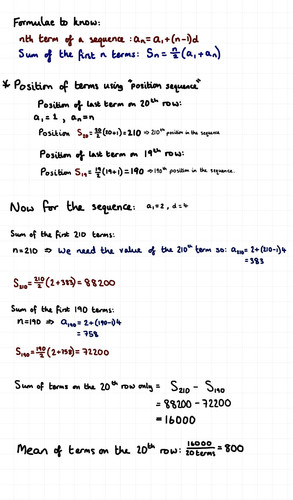 Formulae to know:
nth term of a sequence : aₙ = a₁ + (n-1)d
Sum of the first n terms: Sₙ = n/2 (a₁ + aₙ)
* Position of terms using "position sequence"
Position of last term on 20th row:
a₁ = 1 , aₙ = n
Position S₂₀ = 20/2 (20+1) = 210 ⇒ 210th position in the sequence
Position of last term on 19th row:
Position S₁₉ = 19/2 (19+1) = 190 ⇒ 190th position in the sequence.
Now for the sequence: a₁ = 2 , d = 4
Sum of the first 210 terms:
n = 210 ⇒ We need the value of the 210th term so: a₂₁₀ = 2 + (210-1)4
= 383
S₂₁₀ = 210/2 (2 + 383) = 88200
Sum of the first 190 terms:
n = 190 ⇒ a₁₉₀ = 2 + (190-1)4
= 758
S₁₉₀ = 190/2 (2 + 758) = 72200
Sum of terms on the 20th row only = S₂₁₀ - S₁₉₀
= 88200 - 72200
= 16000
Mean of terms on the 20th row: 16000/20 terms = 800